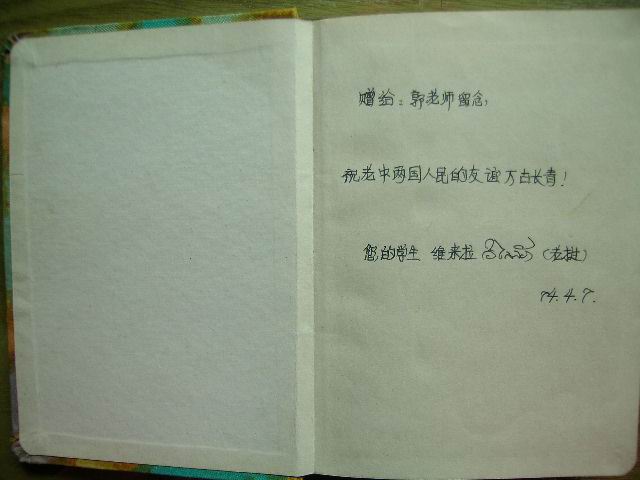 赠给：郭老师留念，
祝老中两国人民的友谊万古长青！
您的学生 维来拉 (老挝)
74.4.7.